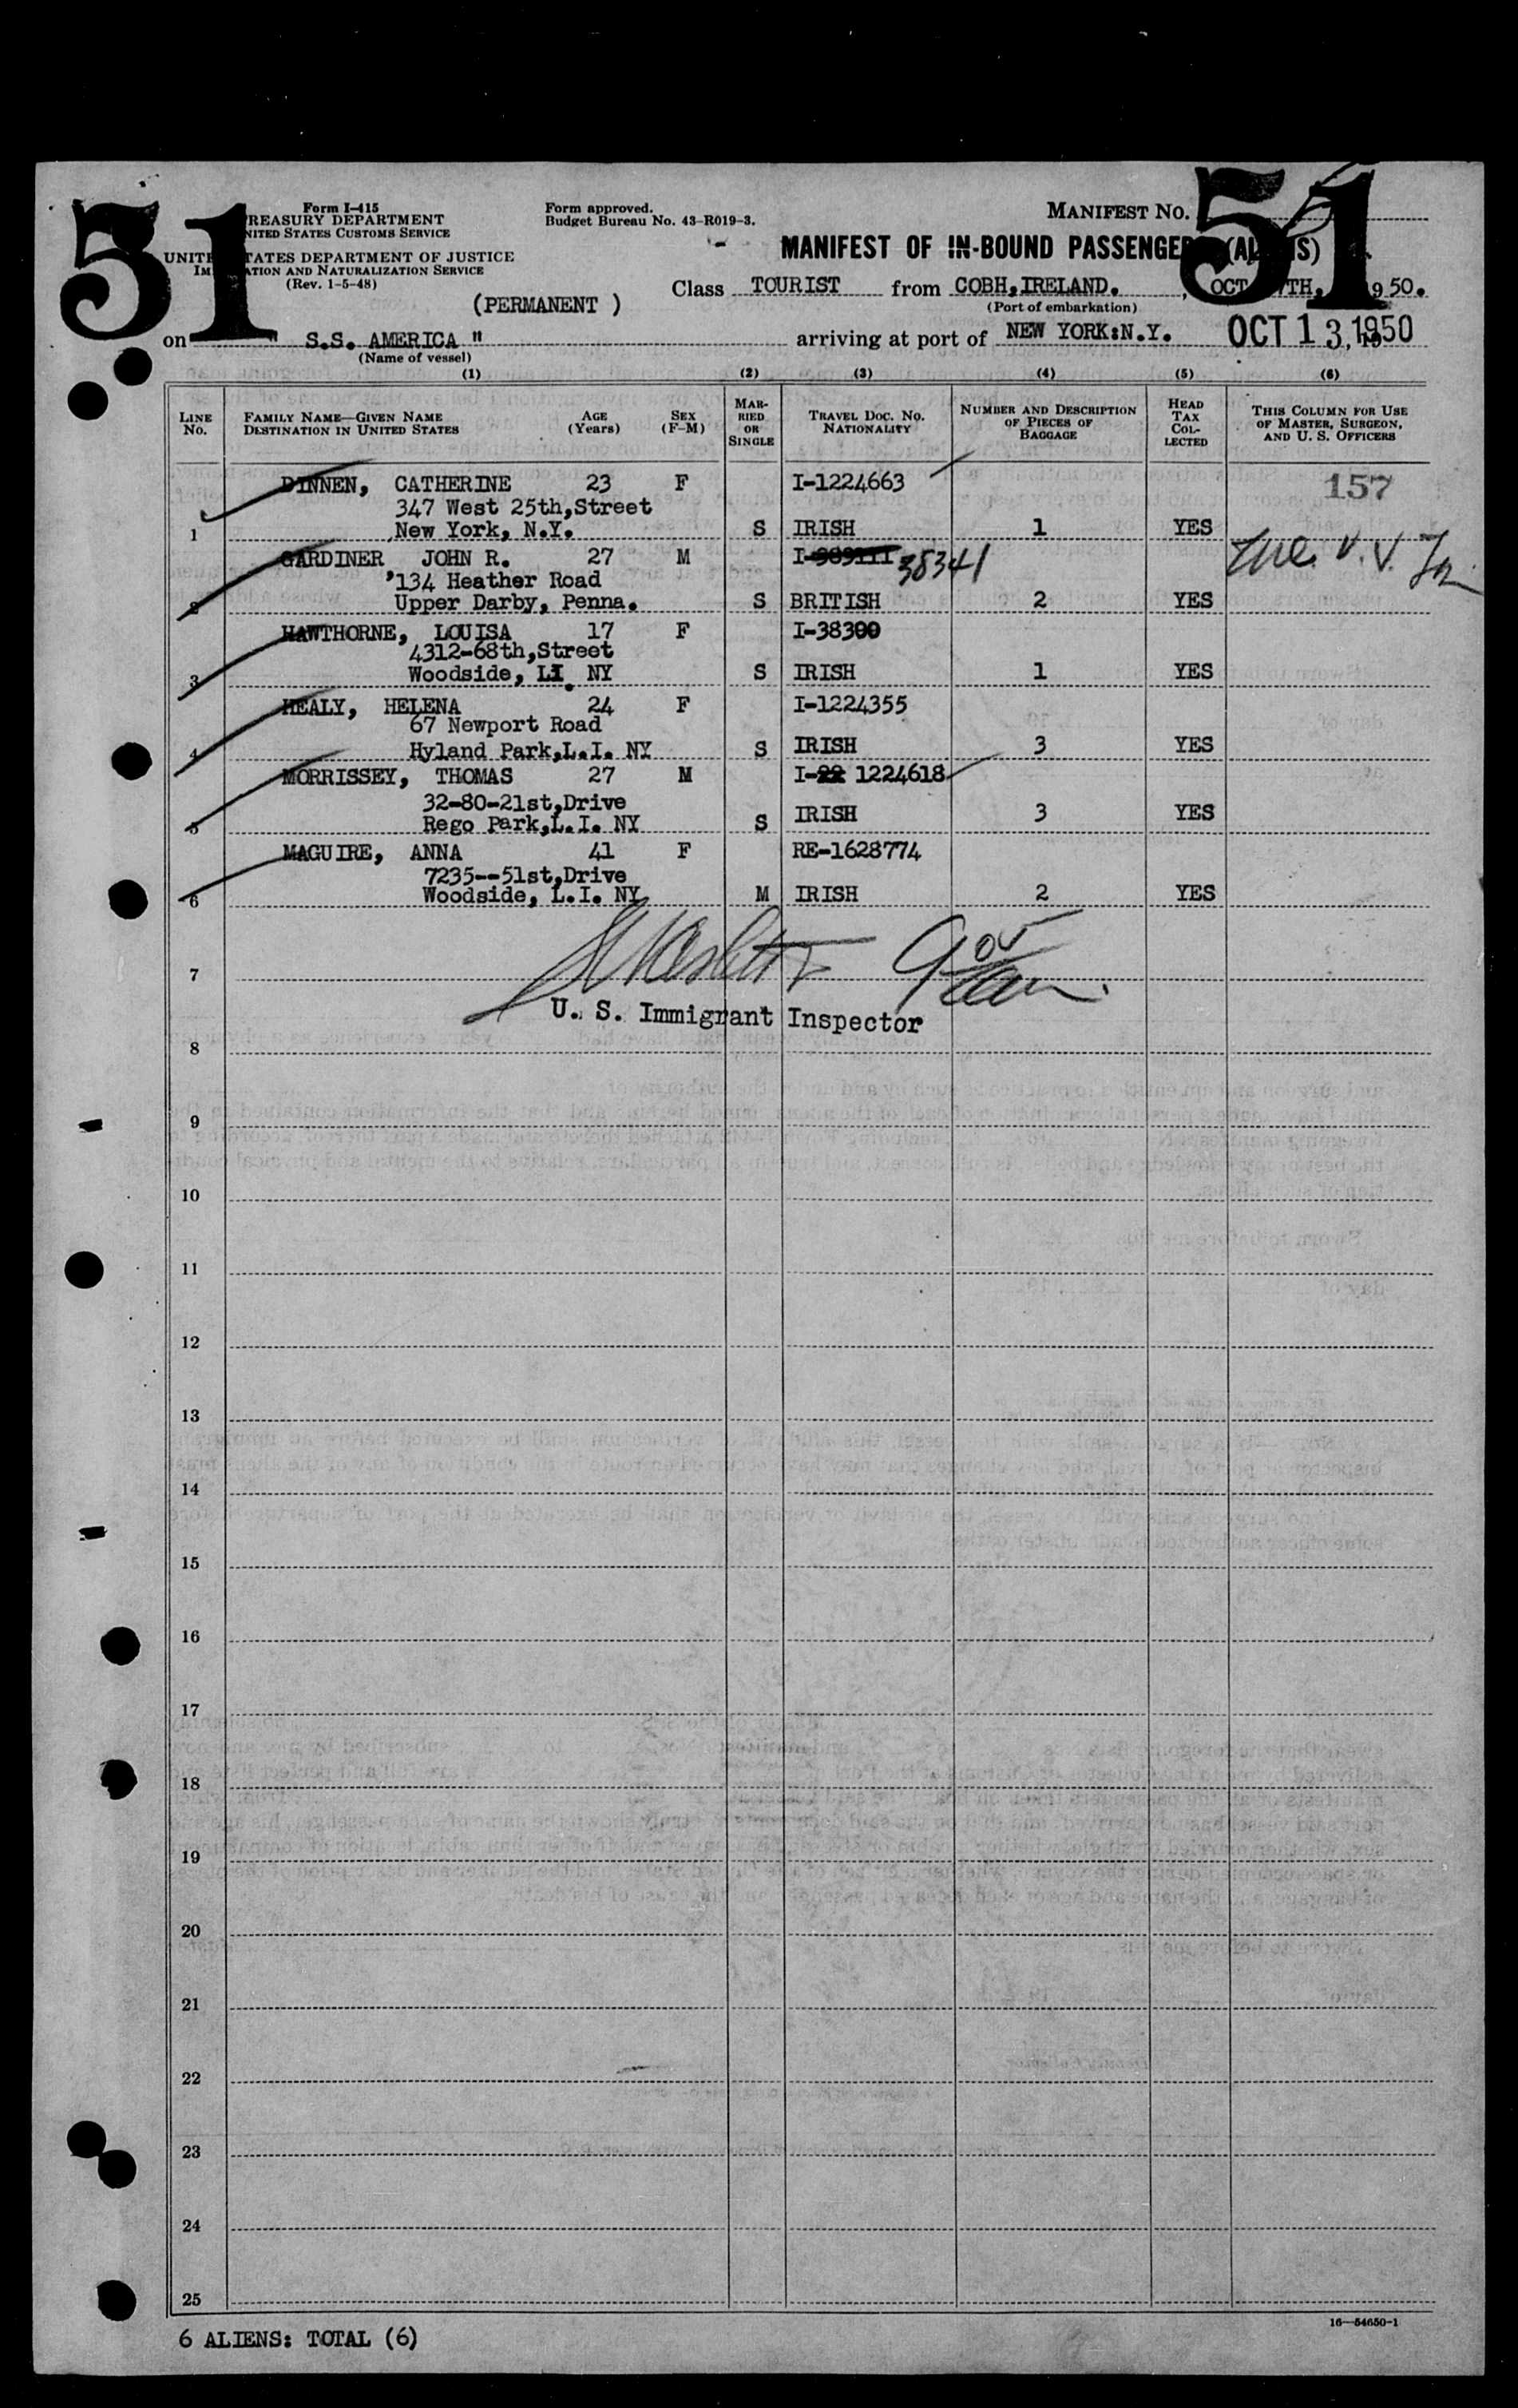 51
51
Form I-415
TREASURY DEPARTMENT
UNITED STATES CUSTOMS SERVICE
UNITED STATES DEPARTMENT OF JUSTICE
IMMIGRATION AND NATURALIZATION SERVICE
(Rev. 1-5-48)
Form approved.
Budget Bureau No. 43-R019-3.
MANIFEST NO. 51
MANIFEST OF IN-BOUND PASSENGERS (ALIENS)
(PERMANENT )
Class TOURIST from COBH,IRELAND. , OCT 7TH, 1950.
(Port of embarkation)
on " S.S. AMERICA " arriving at port of NEW YORK:N.Y. OCT 13, 1950
(Name of vessel)
(1) (2) (3) (4) (5) (6)
LINE No. FAMILY NAME—GIVEN NAME DESTINATION IN UNITED STATES AGE (Years) SEX (F-M) MARRIED OR SINGLE TRAVEL DOC. NO. NATIONALITY NUMBER AND DESCRIPTION OF PIECES OF BAGGAGE HEAD TAX COLLECTED THIS COLUMN FOR USE OF MASTER, SURGEON, AND U. S. OFFICERS
DINNEN, CATHERINE 23 F I-1224663 157
347 West 25th,Street
1 New York, N.Y. S IRISH 1 YES
GARDINER JOHN R. 27 M I-38341
'134 Heather Road
2 Upper Darby, Penna. S BRITISH 2 YES
HAWTHORNE, LOUISA 17 F I-38300
4312-68th,Street
3 Woodside, LI. NY S IRISH 1 YES
HEALY, HELENA 24 F I-1224355
67 Newport Road
4 Hyland Park,L.I. NY S IRISH 3 YES
MORRISSEY, THOMAS 27 M I-22 1224618
32-80-21st,Drive
5 Rego Park,L.I. NY S IRISH 3 YES
MAGUIRE, ANNA 41 F RE-1628774
7235--51st,Drive
6 Woodside, L.I. NY M IRISH 2 YES
7
U. S. Immigrant Inspector
8
9
10
11
12
13
14
15
16
17
18
19
20
21
22
23
24
25
16—54650-1
6 ALIENS: TOTAL (6)